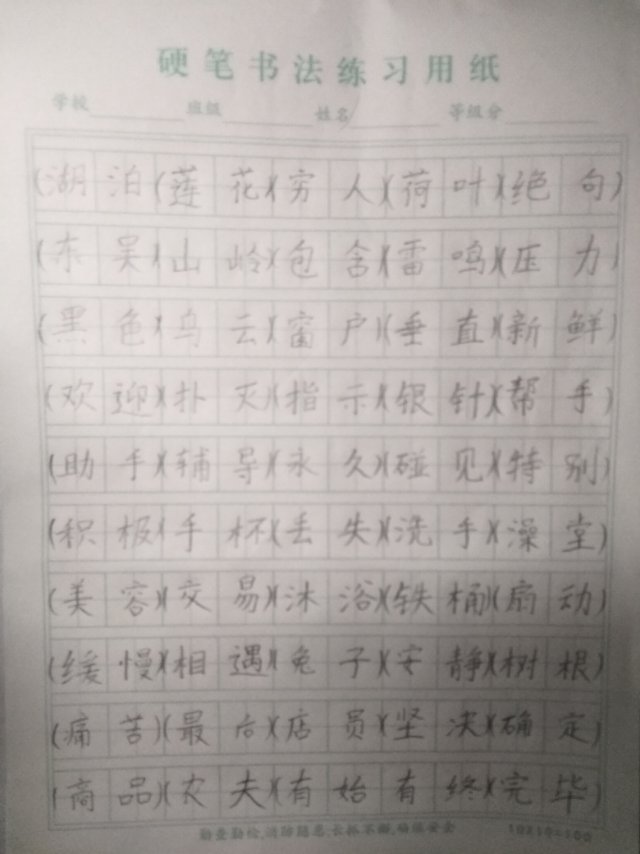 硬笔书法练习用纸
学校 班级 姓名 等级分
(湖泊)(莲花)(穷人)(荷叶)(绝句)
(东吴)(山岭)(包含)(雷鸣)(压力)
(黑色)(乌云)(窗户)(垂直)(新鲜)
(欢迎)(扑灭)(指示)(银针)(帮手)
(助手)(辅导)(永久)(碰见)(特别)
(积极)(手杯)(丢失)(洗手)(澡堂)
(美容)(交易)(沐浴)(铁桶)(扇动)
(缓慢)(相遇)(兔子)(安静)(树根)
(痛苦)(最后)(店员)(坚决)(确定)
(商品)(农夫)(有始有终)(完毕)
勤查勤检,消防隐患,长抓不懈,确保安全 10X10=100